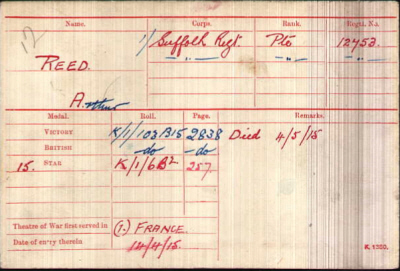 12
Name. Corps. Rank. Regtl. No.
REED. 1/ Suffolk Regt. Pte 12753.
- " - - " - - " -
Arthur
Medal. Roll. Page. Remarks.
VICTORY K/1/103B15 2838 Died 4/5/15
BRITISH -do- -do-
15. STAR K/1/6B2 257.
Theatre of War first served in (1.) FRANCE.
Date of entry therein 14/4/15.
K 1380.